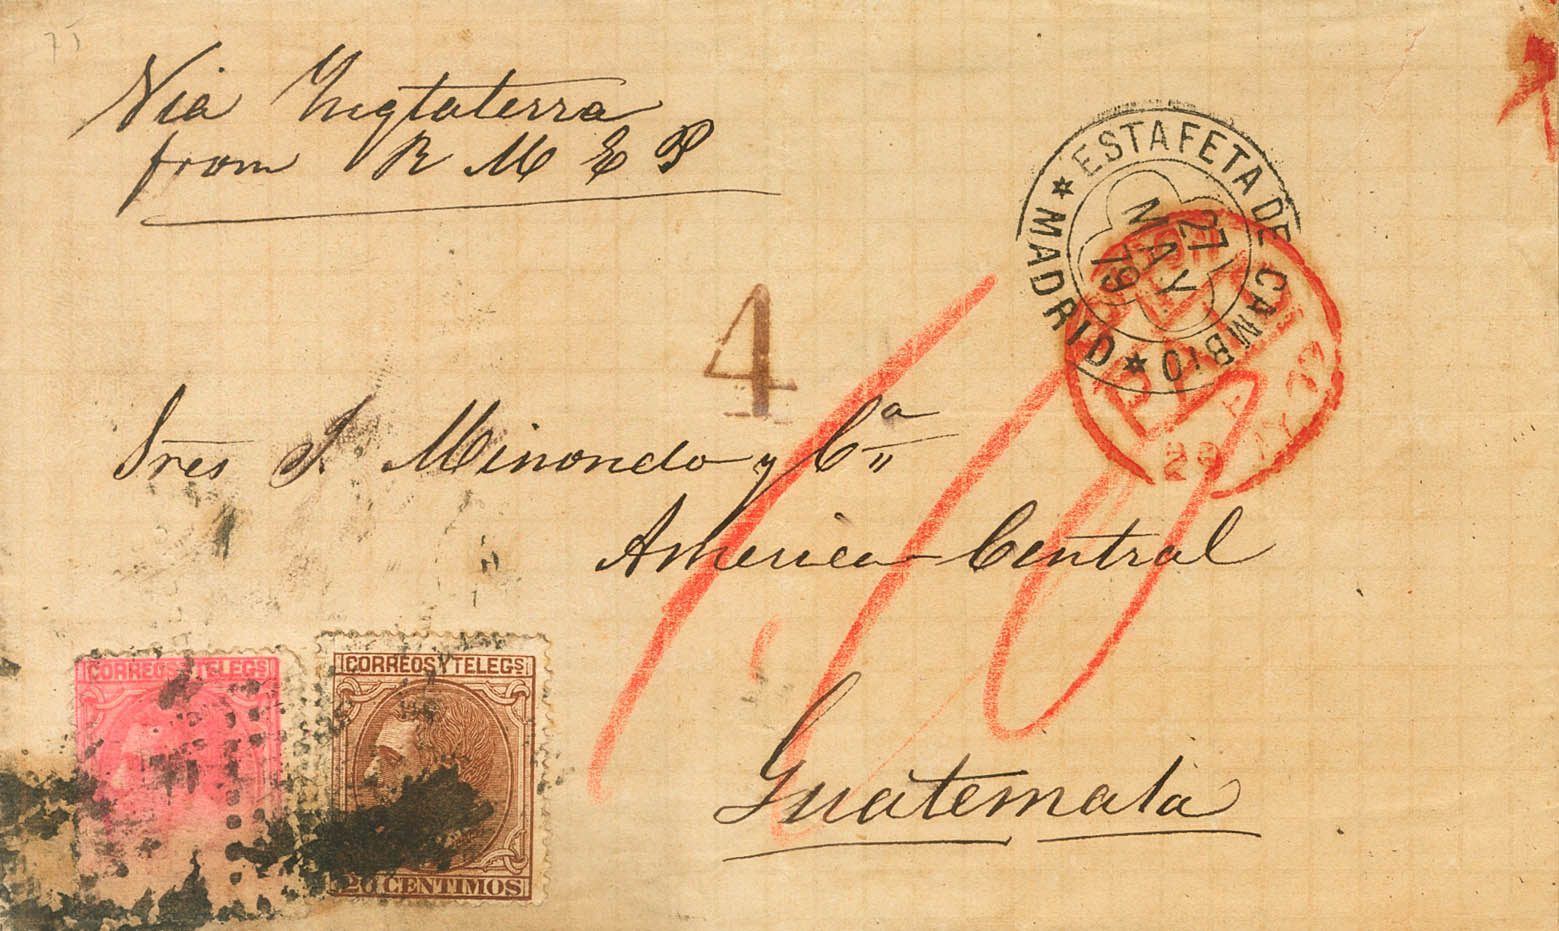 75
Via Ingtaterra
from R M E P
ESTAFETA DE CAMBIO
27
MAY
79
MADRID
LONDON
PAID
29 MY 79
4
Sres J. Minondo y Cª
America Central
1.10
Guatemala
CORREOS Y TELEGS
CORREOS Y TELEGS
20 CENTIMOS